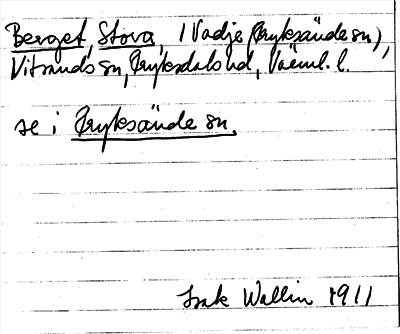 Berget, Stora, i Vadje (Fryksände sn),
Vitsands sn, Fryksdals hd, Värml. l.
se i Fryksände sn.
Isak Wallin 1911